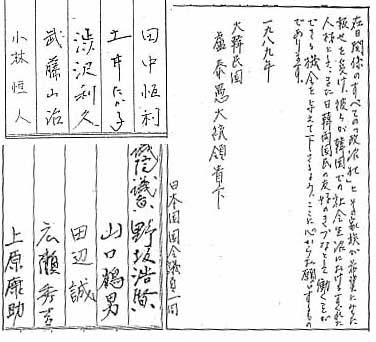 在日関係のすべての"政治犯"とその家族が希望にみちた
報せを受け、彼らが韓国での社会生活におけるすぐれた
人材として、また日韓両国民の友好のきづなとして働くことが
できる機会を与えて下さるよう、ここに心からお願いするもの
であります。
一九八九年
大韓民国
盧泰愚大統領貴下
日本国国会議員一同
田中恒利
土井たか子
渋沢利久
武藤山治
小林恒人
野坂浩賢
山口鶴男
田辺誠
広瀬秀吉
上原康助